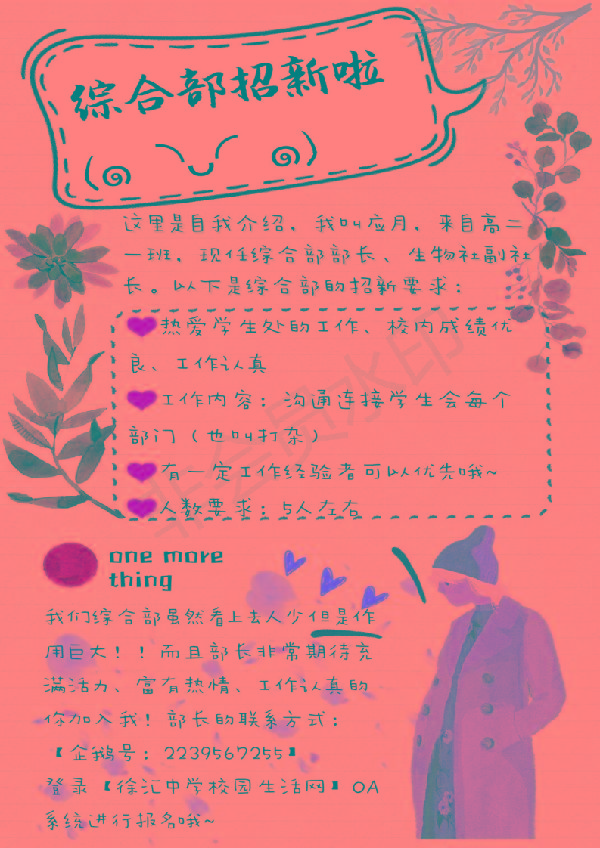 综合部招新啦
这里是自我介绍，我叫应月，来自高二
一班，现任综合部部长、生物社副社
长。以下是综合部的招新要求：
热爱学生处的工作、校内成绩优
良、工作认真
工作内容：沟通连接学生会每个
部门（也叫打杂）
有一定工作经验者可以优先哦~
人数要求：5人左右
非会员水印
one more
thing
我们综合部虽然看上去人少但是作
用巨大！！而且部长非常期待充
满活力、富有热情、工作认真的
你加入我！部长的联系方式：
【企鹅号：2239567255】
登录【徐汇中学校园生活网】OA
系统进行报名哦~